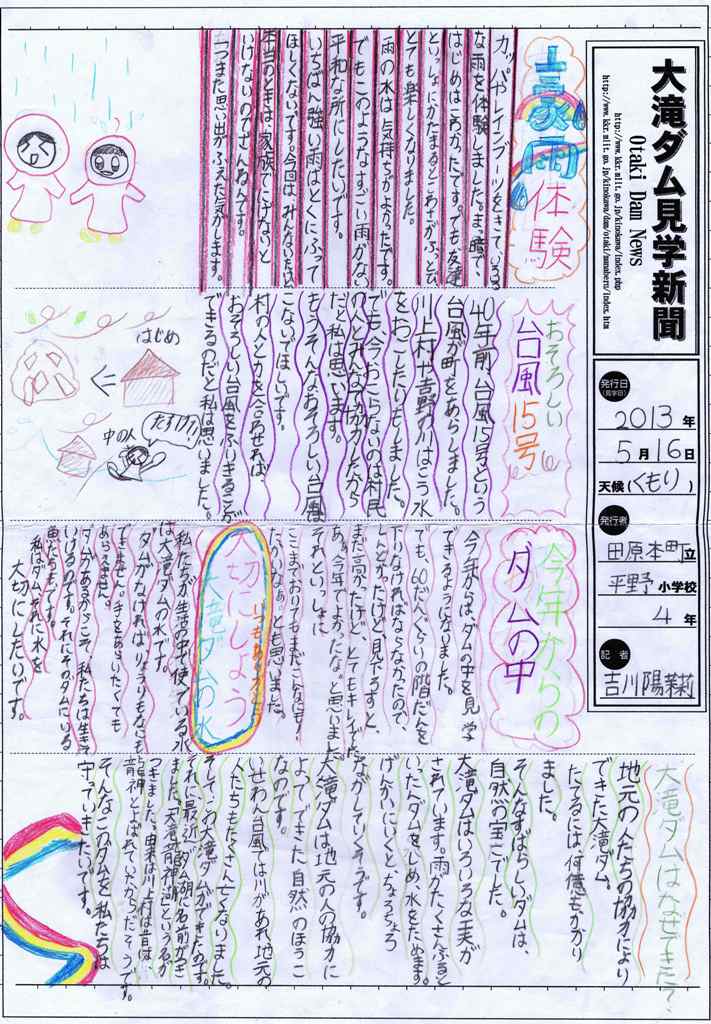 大滝ダム見学新聞
Otaki Dam News
http://www.kkr.mlit.go.jp/kinokawa/index.php
発行日
(見学日)
2013年
5月16日
天候(くもり)
発行者
田原本町立
平野小学校
4年
記者
吉川陽茉莉
豪雨体験
カッパやレインブーツをきて、いろいろ
な雨を体験しました。まっ暗で、
はじめはこわかったです。でも、友達
といっしょにかたまるとこわさがふっとび
とても楽しくなりました。
雨の水は気持ちがよかったです。
でもこのようなすごい雨がない
平和な所にしたいです。
いちばん強い雨はとくにふって
ほしくないです。今回は、みんないたけど
本当のときは、家族でにげないと
いけないのでざんねんです。
一つまた思い出がふえた気がします。
おそろしい
台風15号
40年前、台風15号という
台風が町をあらしました。
川上村や吉野の川はこう水
をおこしたりもしました。
でも、今おこらないのは村民
の人とみんなで協力したから
だと私は思います。
もうそんなおそろしい台風
こないでほしいです。
村の人と力を合わせれば、
おそろしい台風をふりきることが
できるのだと私は思いました。
はじめ
中の人
たすけて!!
今年からの
ダムの中
今年からは、ダムの中を見学
できるようになりました。
でも、60だんぐらいの階だんを
下りなければならなかったので、
しんどかったけど、見下ろすと、
まだ高かったけど、とてもキレイで、
あぁ、今年でよかったな。と思いました。
それといっしょに
ここまでおりてもまだこんなにも!
たかいなぁ。とも思いました。
いつもありがとう
大切にしよう
大滝ダムの水
私たちが、生活の中で使っている水
は大滝ダムの水です。
ダムがなければりょうりもなにも
できません。手をあらいたくても
あらえません。
ダムがあるからこそ、私たちは生きて
いけるのです。それにそのダムにいる
魚たちもです。
私はダム、それに水を
大切にしたいです。
大滝ダムはなぜできた?
地元の人たちの協力により
できた大滝ダム。
たてるには、何億もかかり
ました。
そんなすばらしいダムは、
自然の宝こでした。
大滝ダムはいろいろな工夫が
されています。雨がたくさんふると
いったんダムをしめ、水をためます。
げんかいにいくと、ちょろちょろ
ながしていくそうです。
大滝ダムは地元の人の協力に
よってできた、自然のほうこ
なのです。
いせわん台風では川があれ地元の
人たちもたくさん亡くなりました。
そしてこの大滝ダムができたのです。
それに最近、ダム湖に名前がつき
ました。大滝龍神湖という名が
つきました。由来は川上村は昔は、
龍神とよばれていたからだそうです。
そんなこのダムを私たちは
守っていきたいです。